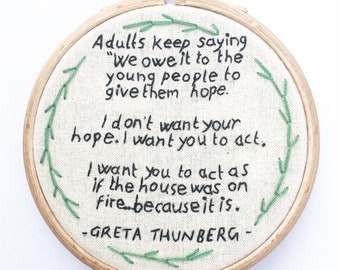 Adults keep saying
"We owe it to the
young people to
give them hope.
I don't want your
hope. I want you to act.
I want you to act as
if the house was on
fire...because it is.
-GRETA THUNBERG-